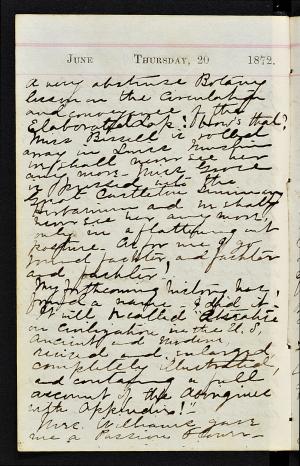 June Thursday, 20 1872.
a very abstruse Botany
lesson on the Circulation
and conveyance of the
Elaborated Sap: How's that?
Miss Bissell is rolled
away in Swiss Muslin
we shall never see her
any more. Miss Grose
is pressed into the
Great Castleton Seminary
Herbarium and we shall
never see her any more,
only in a flattened out
posture. As for me I go
round faster, and faster
and faster!
My forthcoming history has
found a name. I did it.
It will be called "Researches
on Civilization in the U.S.
Ancient and Modern,
revised and enlarged
completely illustrated,
and containing a full
account of the Aborigines
with Appendix!"
Mrs. Williams gave
me a Passion Flower